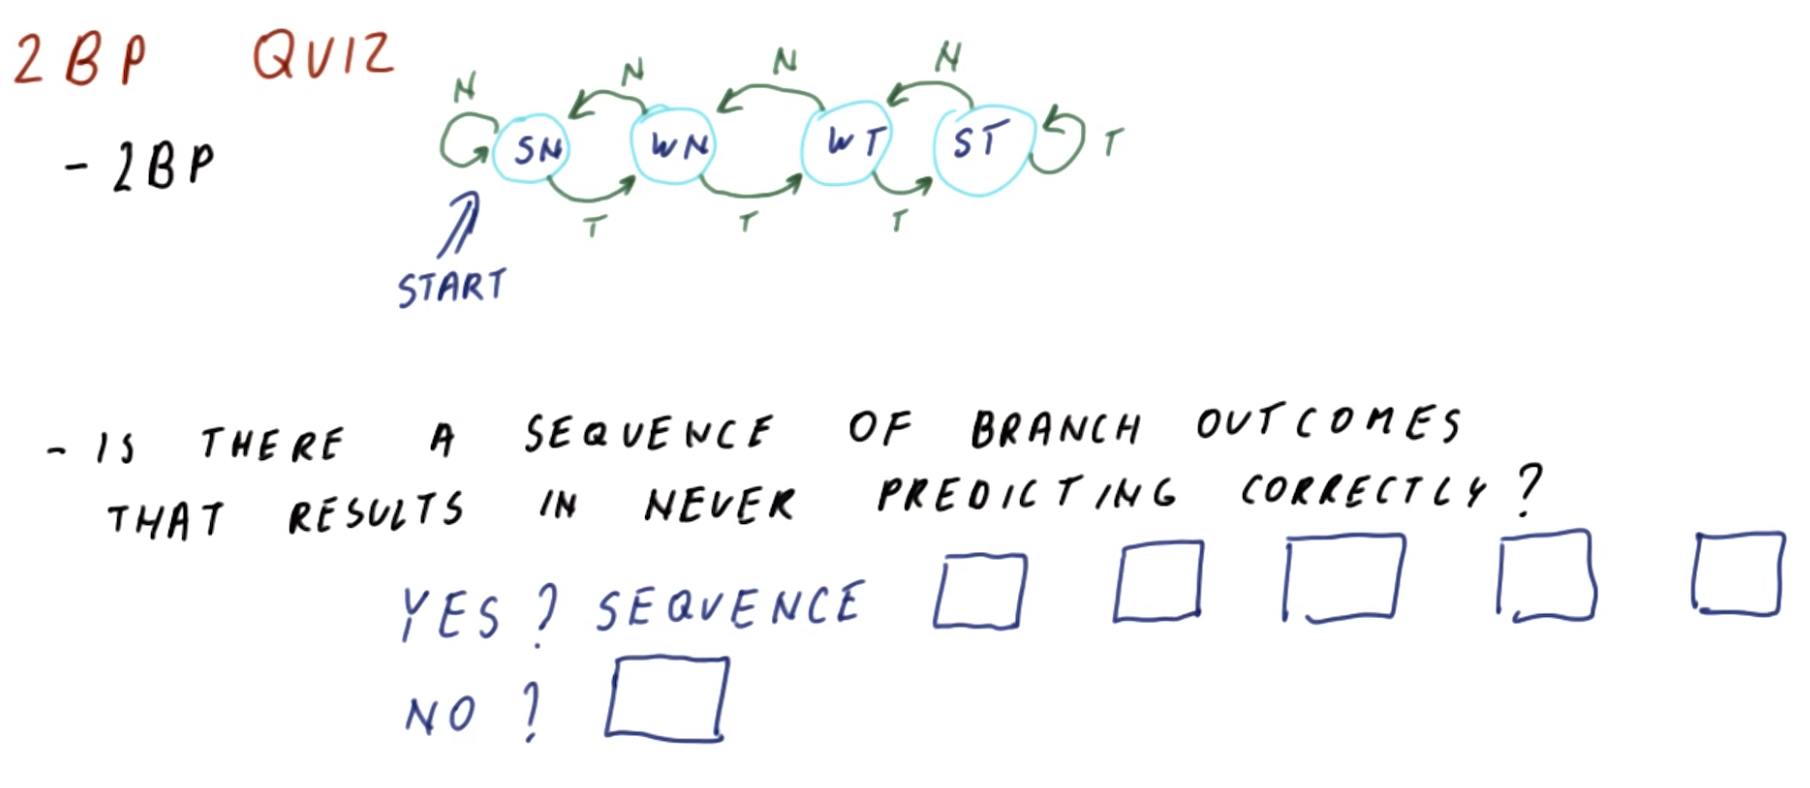 2BP QUIZ
- 2BP
N N N N
SN WN WT ST T
T T T
START
- IS THERE A SEQUENCE OF BRANCH OUTCOMES
THAT RESULTS IN NEVER PREDICTING CORRECTLY?
YES? SEQUENCE
NO?